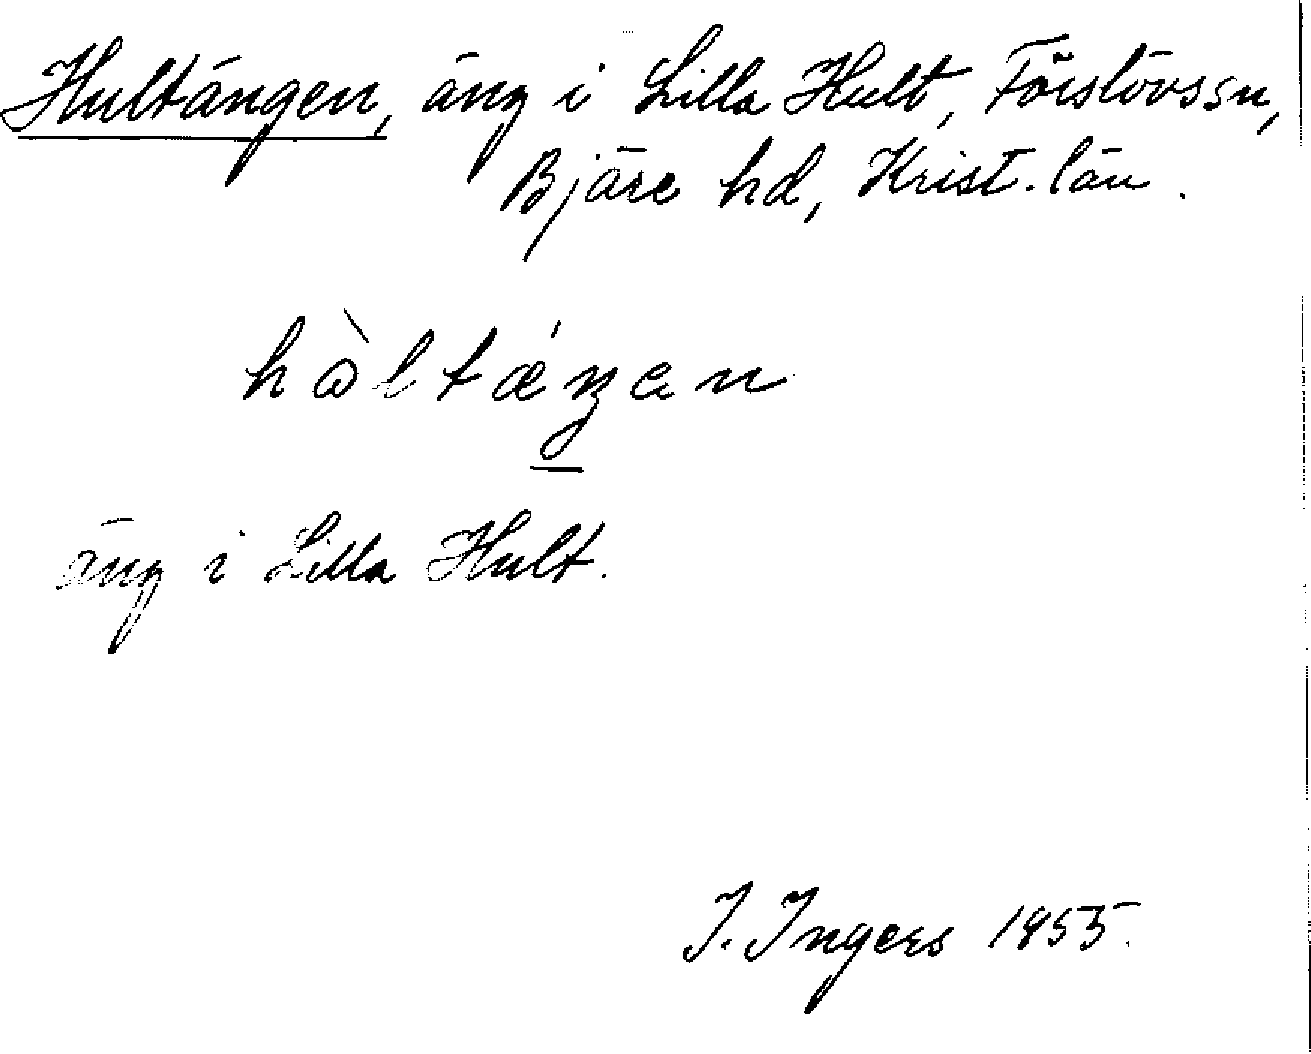 Hultängen, äng i Lilla Hult, Förslövssn,
Bjäre hd, Krist. län.
hòltǽŋen
äng i Lilla Hult.
I. Ingers 1955.